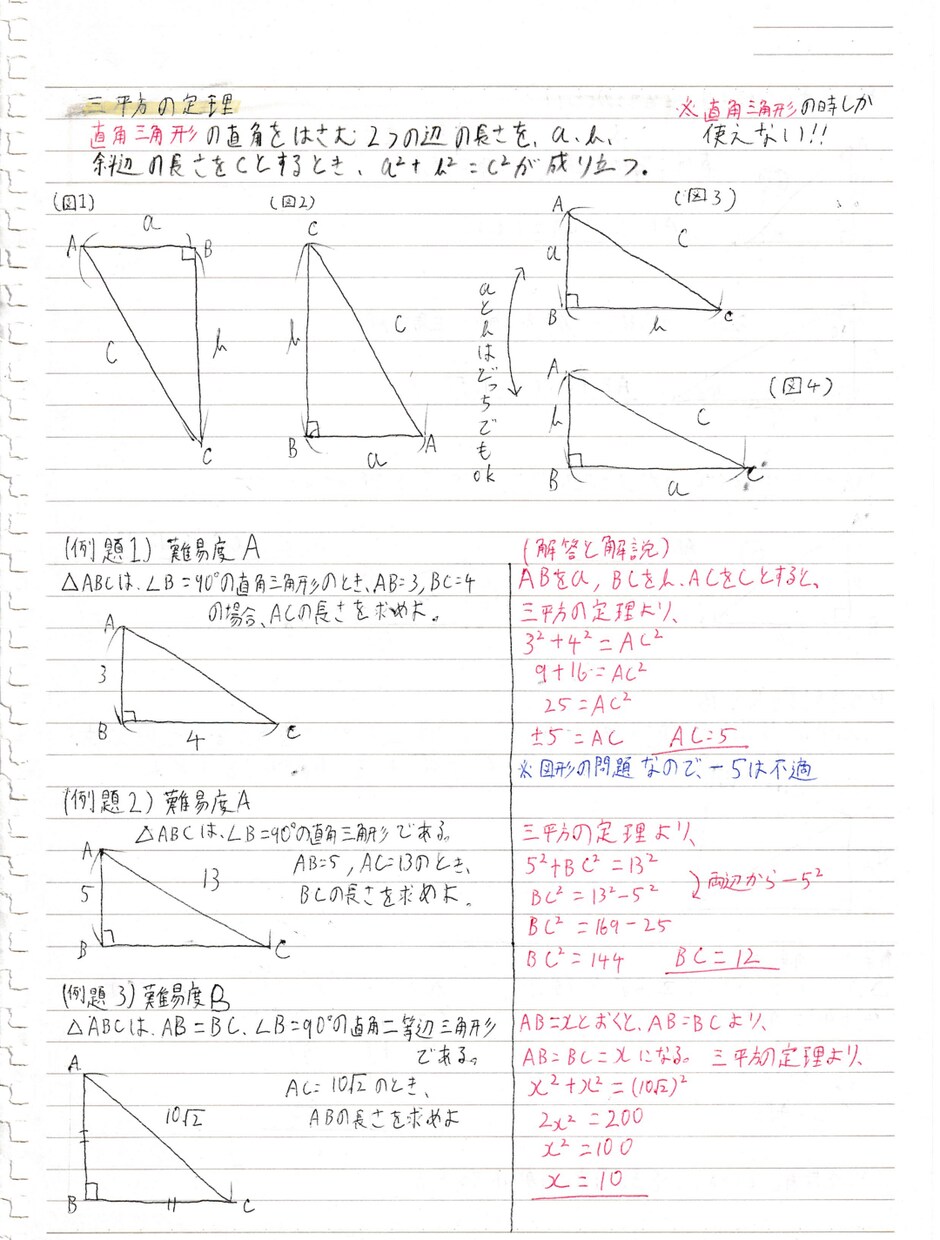 三平方の定理
※直角三角形の時しか
使えない!!
直角三角形の直角をはさむ2つの辺の長さを、a、b、
斜辺の長さをcとするとき、a²+b²=c²が成り立つ。
(図1)
a
A
B
c
b
C
(図2)
C
b
c
B
a
A
aとbはどっちでもok
(図3)
A
a
c
B
b
C
(図4)
A
b
c
B
a
C
(例題1) 難易度A
△ABCは、∠B=90°の直角三角形のとき、AB=3, BC=4
の場合、ACの長さを求めよ。
A
3
B
4
C
(解答と解説)
ABをa, BCをb、ACをcとすると、
三平方の定理より、
3²+4²=AC²
9+16=AC²
25=AC²
±5=AC AC=5
※図形の問題なので、-5は不適
(例題2) 難易度A
△ABCは、∠B=90°の直角三角形である。
AB=5, AC=13のとき、
BCの長さを求めよ。
A
5
13
B
C
三平方の定理より、
5²+BC²=13²
BC²=13²-5²
両辺から-5²
BC²=169-25
BC²=144 BC=12
(例題3) 難易度B
△ABCは、AB=BC、∠B=90°の直角二等辺三角形
である。
AC=10√2のとき、
ABの長さを求めよ
A
10√2
B
C
AB=xとおくと、AB=BCより、
AB=BC=xになる。三平方の定理より、
x²+x²=(10√2)²
2x²=200
x²=100
x=10